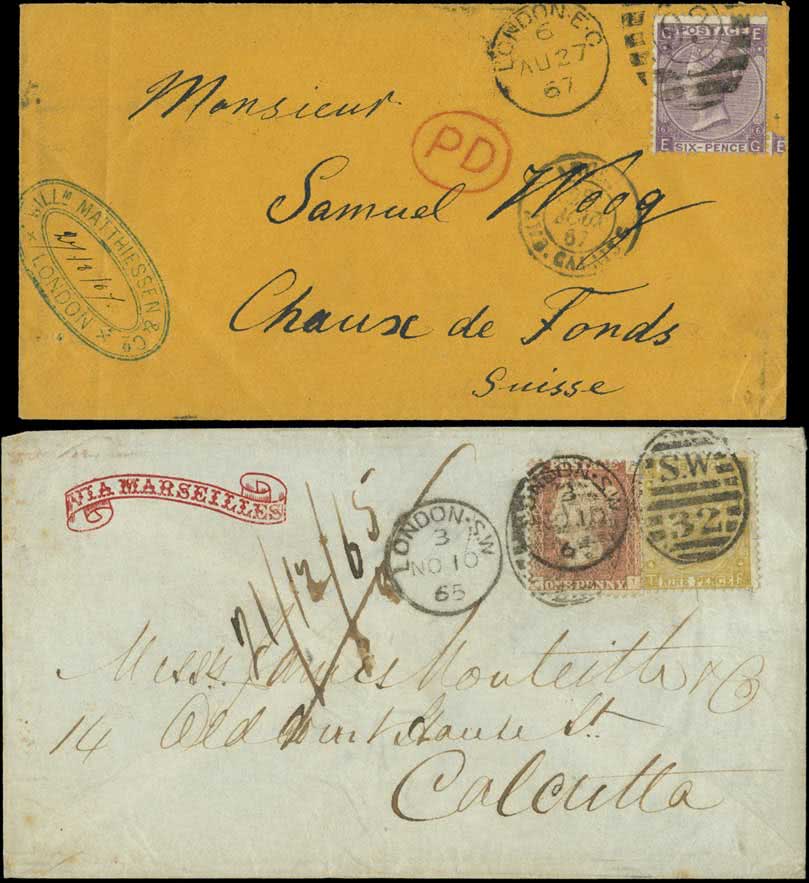 LONDON·E·C
6
AU 27
67
G POSTAGE E
E SIX-PENCE G
E
PD
Monsieur
Samuel Woog
67
Chaux de Fonds
Suisse
WILLM MATTHIESSEN & Co
27/8/67
LONDON
VIA MARSEILLES
21/12/65
LONDON·S.W
3
NO 10
65
LONDON·S.W
3
NO 10
65
ONE PENNY
S.W
32
NINE PENCE
Messrs James Monteith & Co
14 Old Court House St
Calcutta